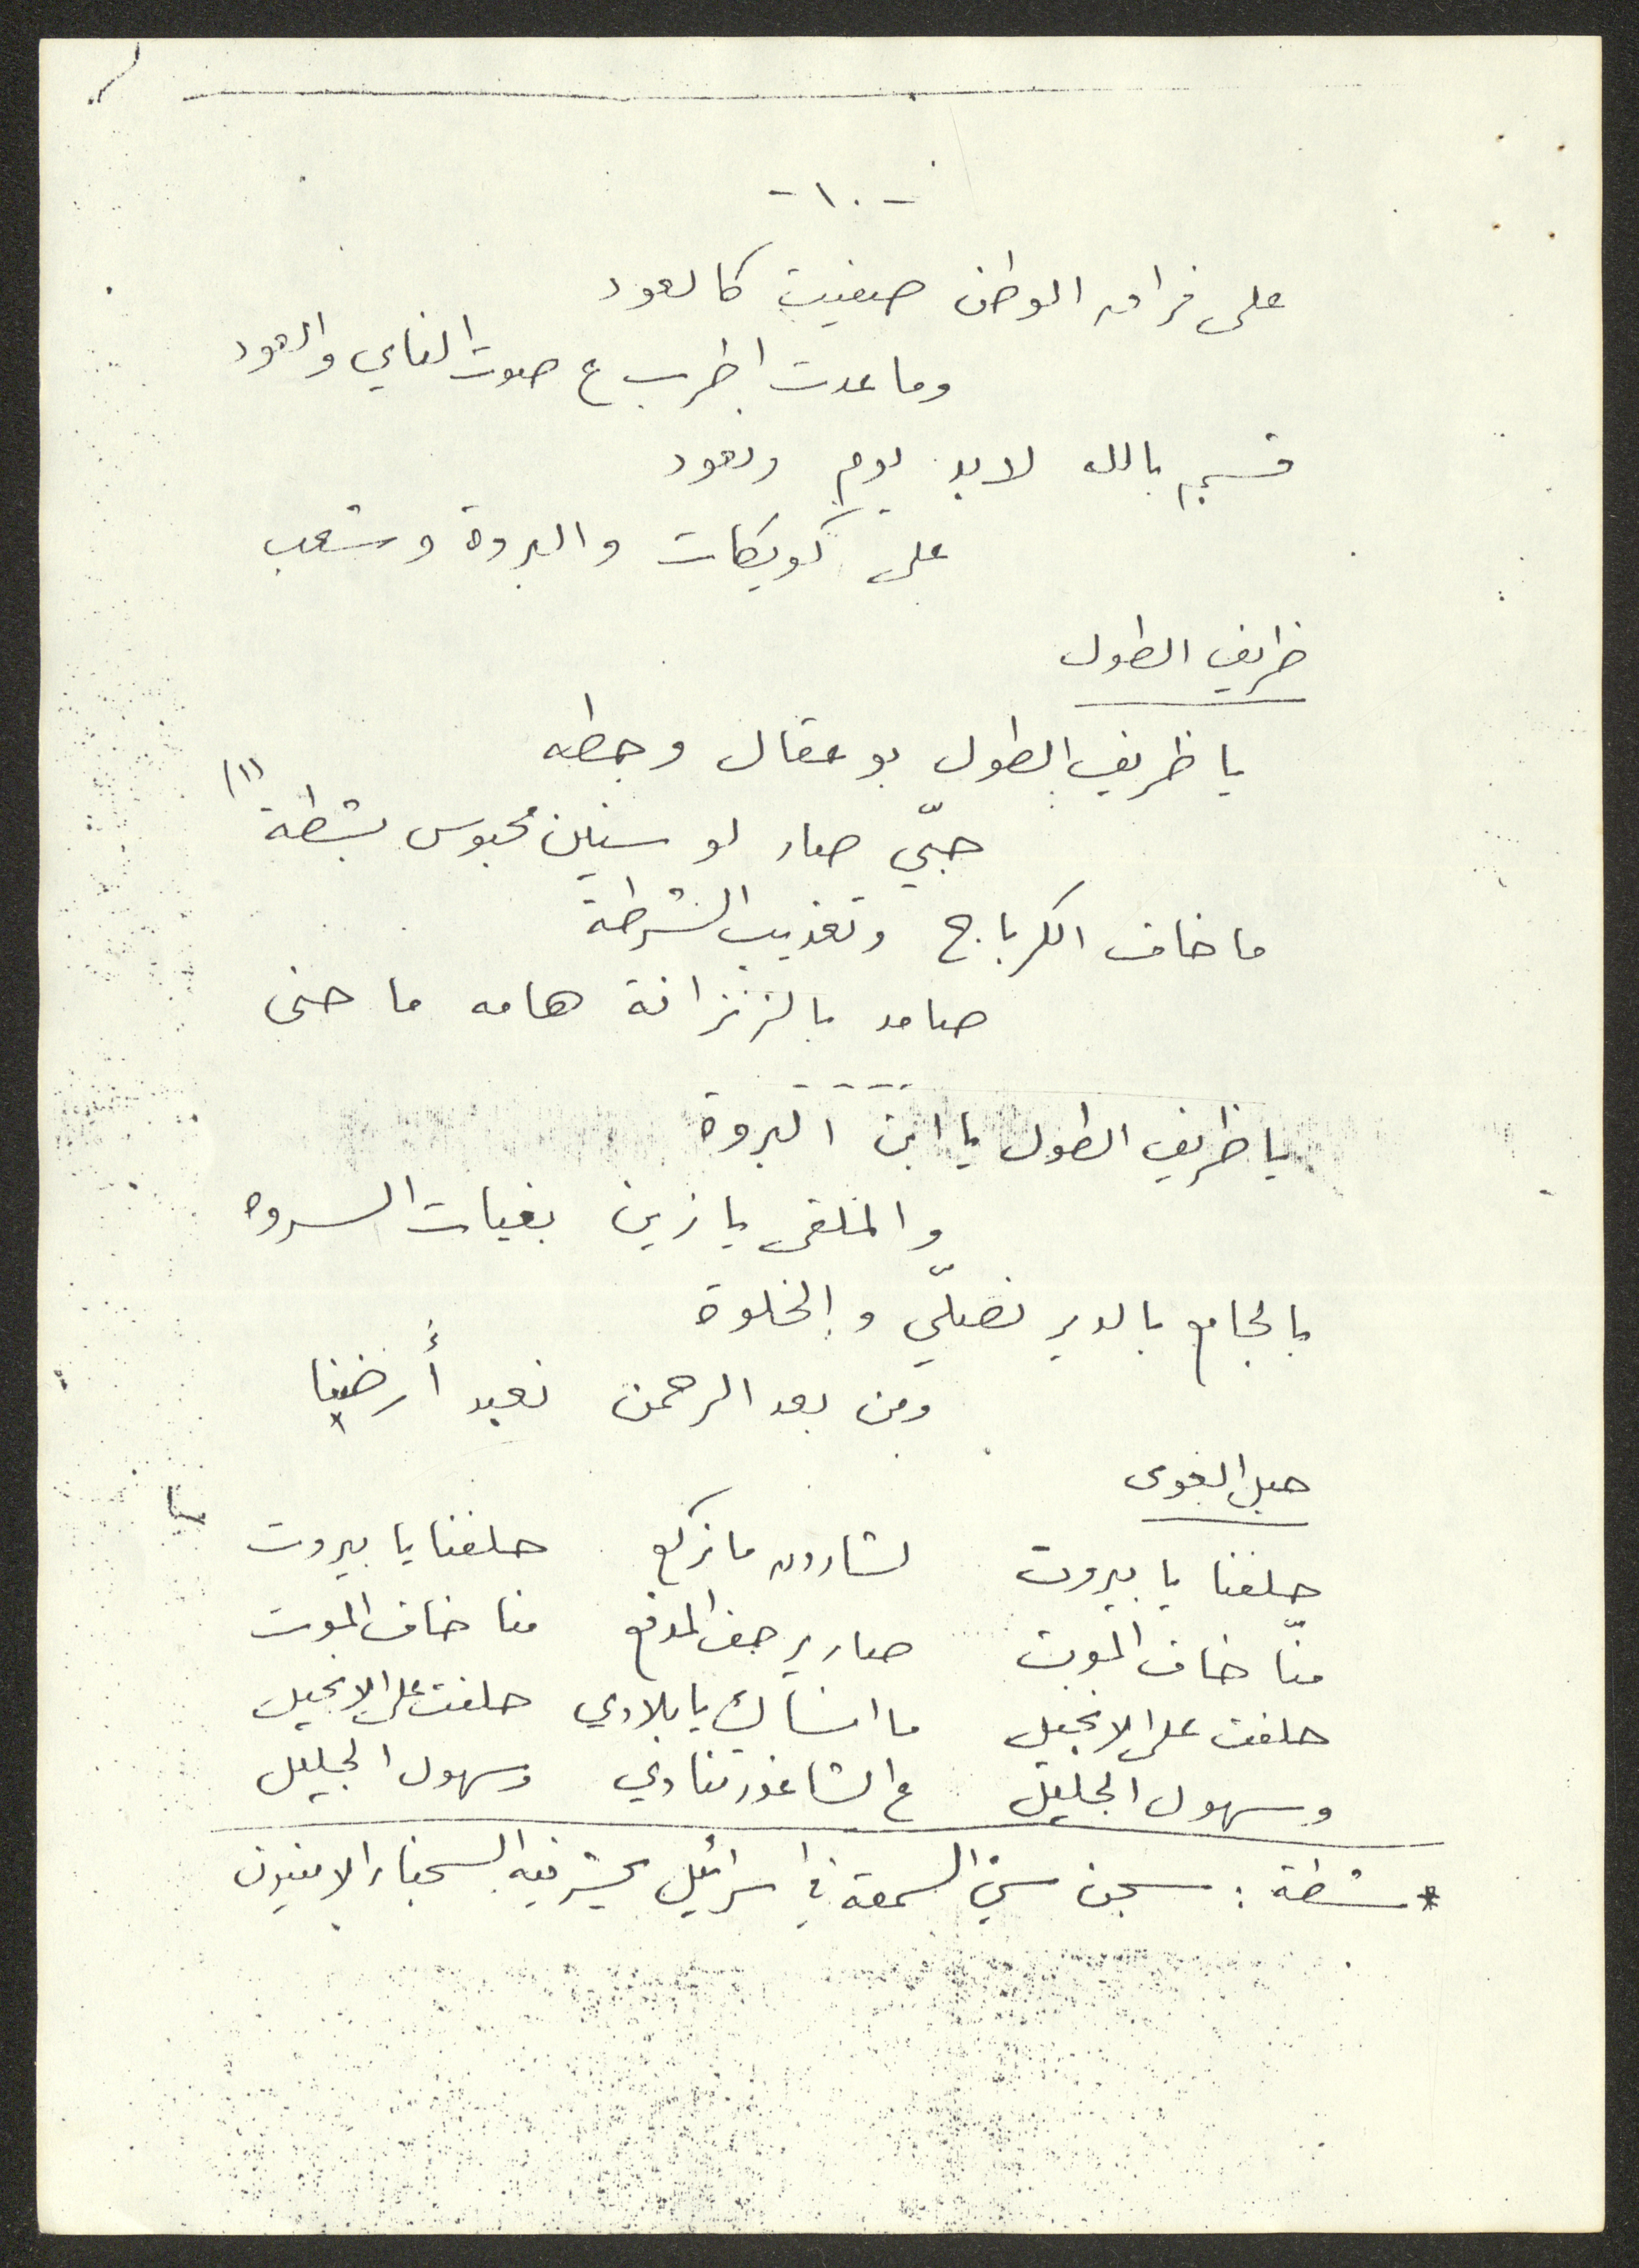 -١٠-
على فراق الوطن صفيت كالعود
وما عدت اطرب ع صوت الناي والعود
قسم بالله لابد يوم ونعود
على كويكات والبروة وشعب
ظريف الطول
يا ظريف الطول بو عقال وحطه
حبّي صار لو سنين محبوس بشطة (١)
ما خاف الكرباج وتعذيب الشرطة
صامد بالزنزانة هامه ما حنى
-----
يا ظريف الطول يا ابن البروة
والملقى يا زين بفيات السروه
بالجامع بالدير نصلّي والخلوة
ومن بعد الرحمن نعبد أرضينا
حبل الغوى
حلفنا يا بيروت لشارون ما نركع حلفنا يا بيروت
منّا خاف الموت صار يرجف المدفع منا خاف الموت
حلفت على الانجيل ما انساك يا بلادي حلفت على الانجيل
وسهول الجليل ع الشاغور تنادي وسهول الجليل
* شطة : سجن سيّ السمعة في اسرائيل يحشر فيه السجناء الامنيون